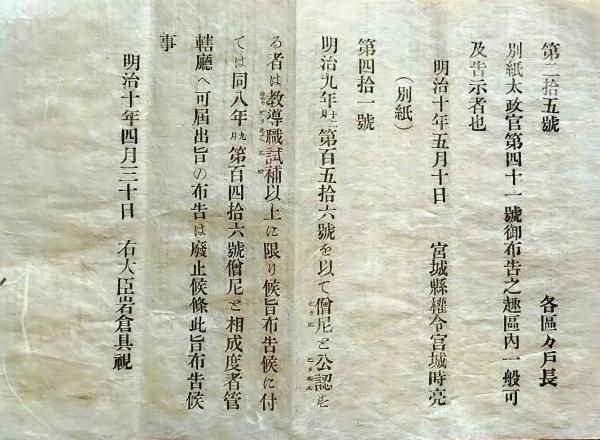 第二拾五號　各區々戸長
別紙太政官第四十一號御布告之趣區內一般可
及告示者也
明治十年五月十日　宮城縣權令宮城時亮
(別紙)
第四拾一號
明治九年十二月第百五拾六號を以て僧尼と公認す
る者は教導職試補以上に限り候旨布告候に付
ては同八年九月第百四拾六號僧尼と相成度者管
轄廳へ可屆出旨の布告は廢止候條此旨布告候
事
明治十年四月三十日　右大臣岩倉具視